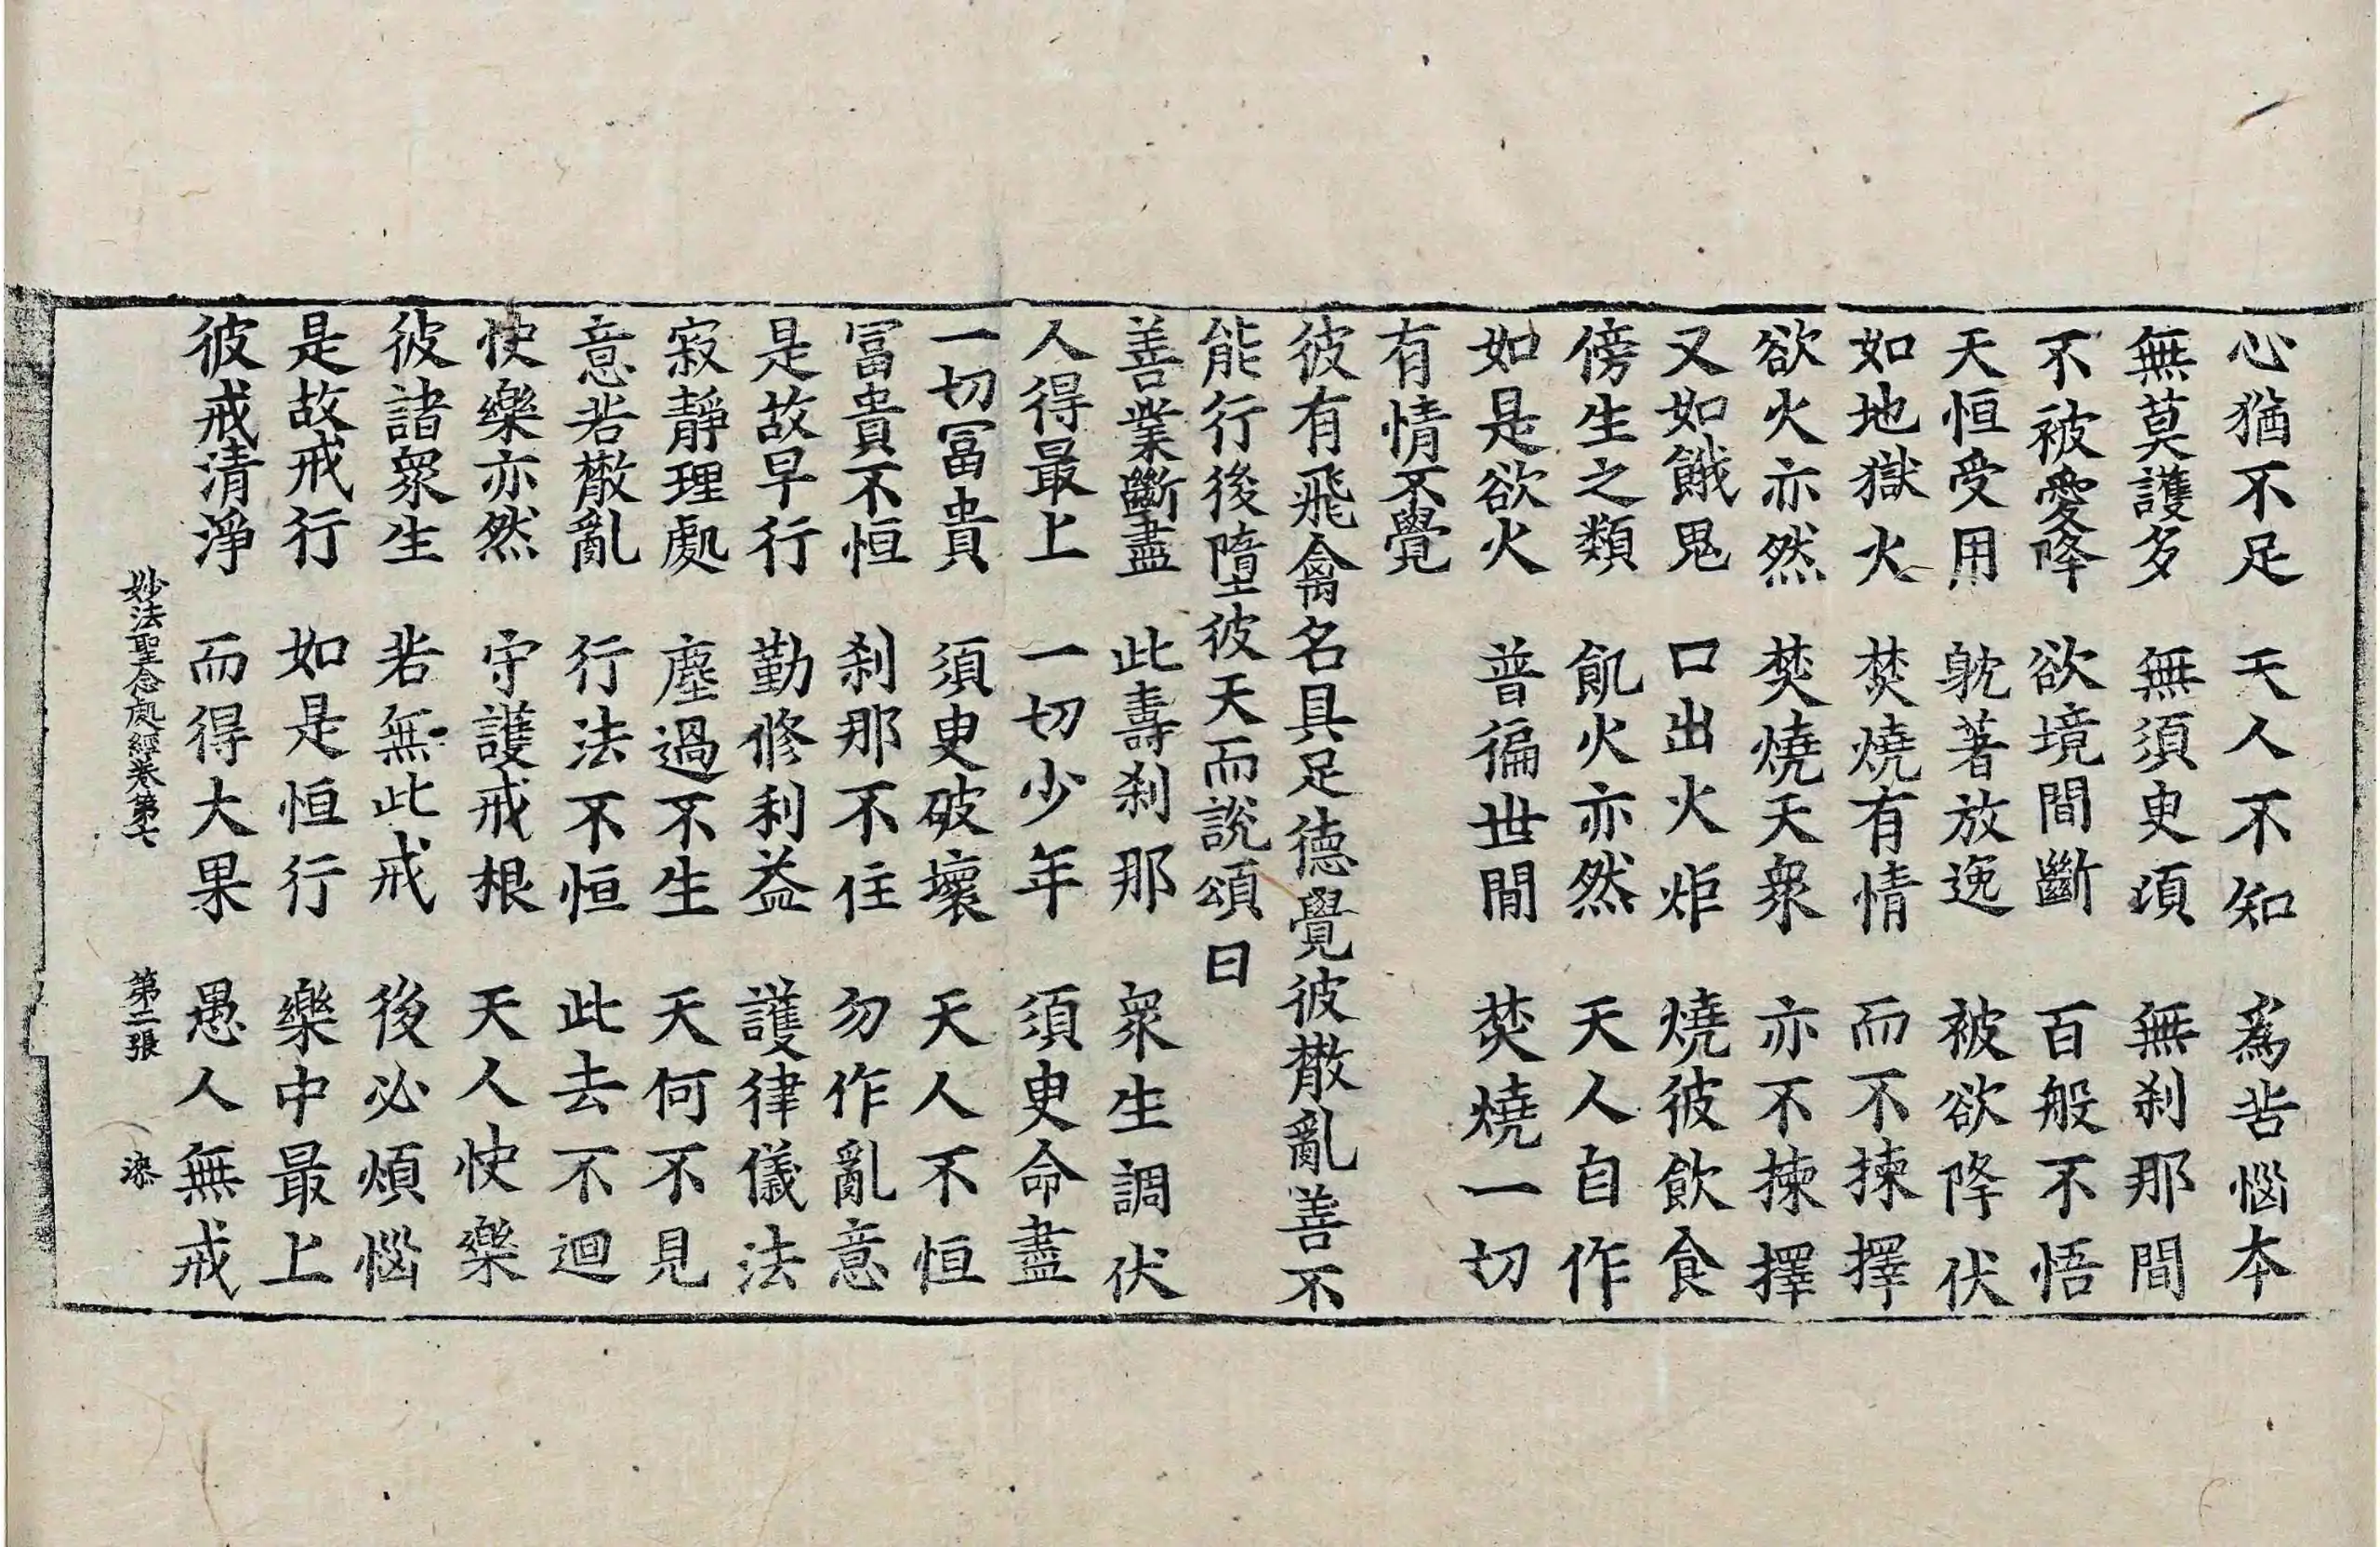 心猶不足　天人不知　為苦惱本
無莫護多　無須臾湏　無剎那間
不被愛降　欲境間斷　百般不悟
天恒受用　躭著放逸　被欲降伏
如地獄火　焚燒有情　而不揀擇
欲火亦然　焚燒天衆　亦不揀擇
又如餓鬼　口出火炬　燒彼飲食
傍生之類　飢火亦然　天人自作
如是欲火　普徧世間　焚燒一切
有情不覺
彼有飛禽名具足德覺彼散亂善不
能行後墮彼天而說頌曰
善業斷盡　此壽剎那　衆生調伏
人得最上　一切少年　須臾命盡
一切冨貴　須臾破壞　天人不恒
冨貴不恒　剎那不住　勿作亂意
是故早行　勤修利益　護律儀法
寂靜理處　塵過不生　天何不見
意若散亂　行法不恒　此去不迴
快樂亦然　守護戒根　天人快樂
彼諸衆生　若無此戒　後必煩惱
是故戒行　如是恒行　樂中最上
彼戒清淨　而得大果　愚人無戒
妙法聖念處經卷第七　第二張　漆